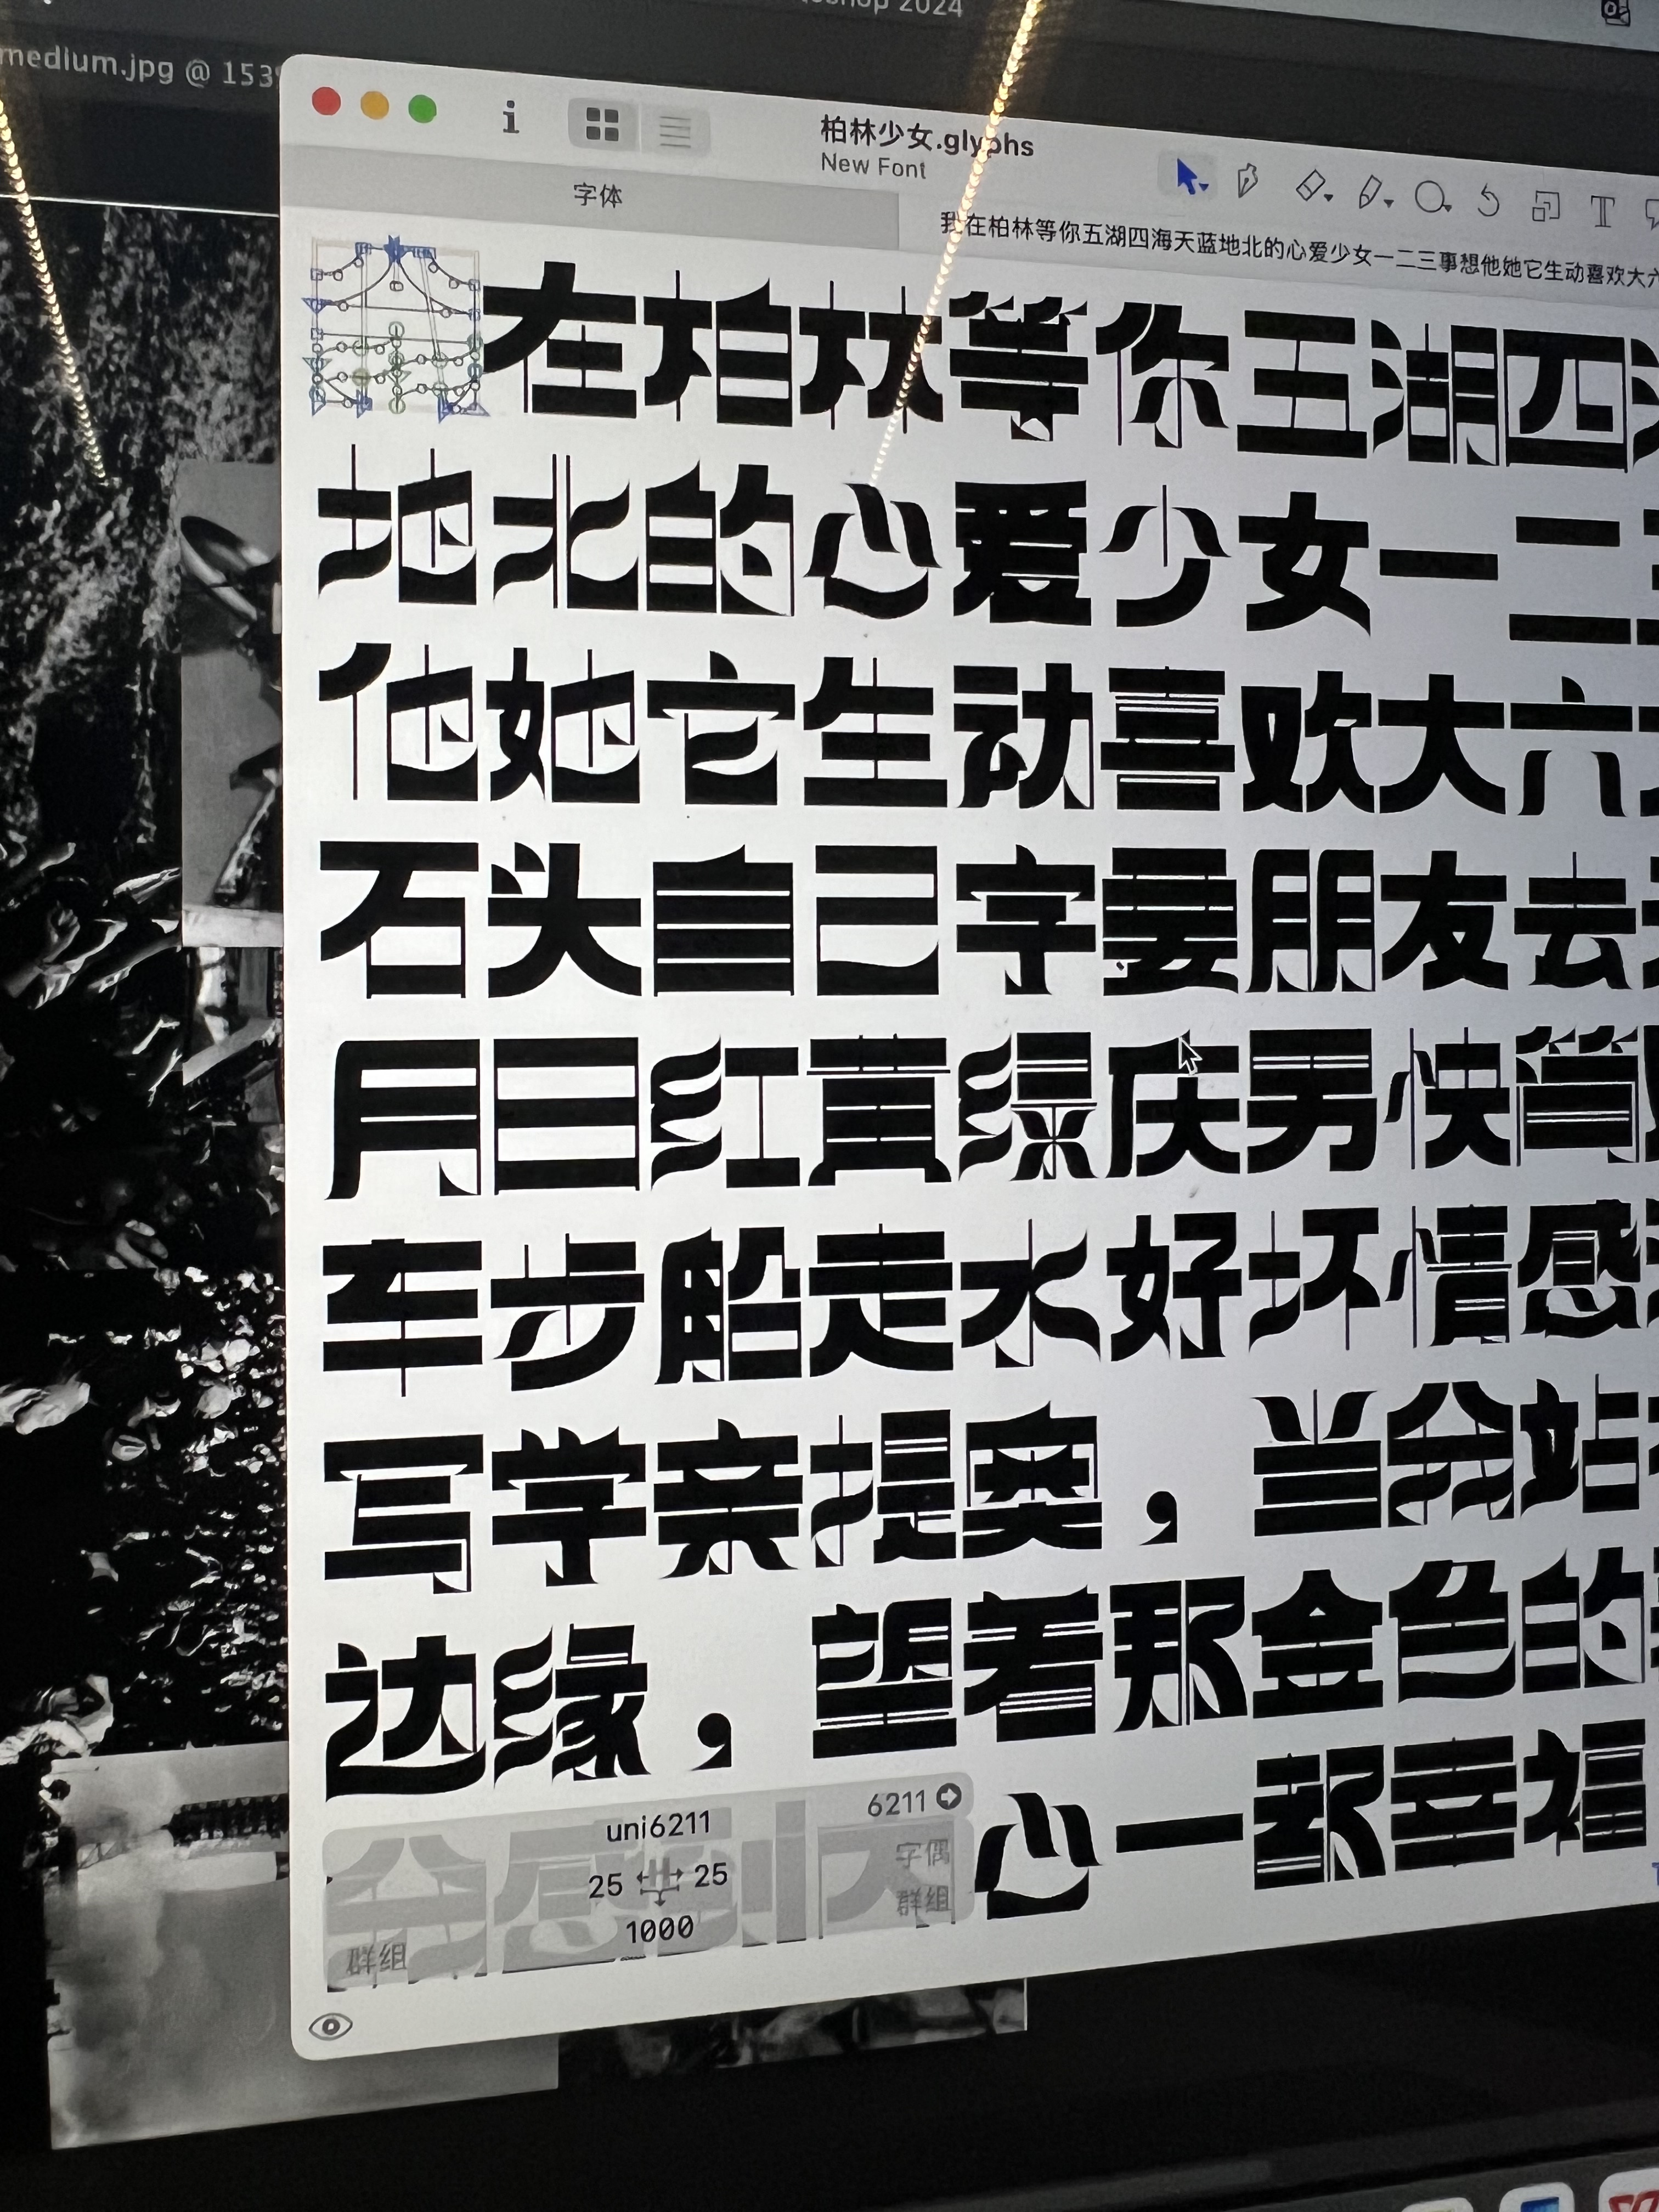 shop 2024
medium.jpg @ 153
柏林少女.glyphs
New Font
字体
我在柏林等你五湖四海天蓝地北的心爱少女一二三事想他她它生动喜欢大六
在柏林等你五湖四
地北的心爱少女一二
他她它生动喜欢大六
石头自己字要朋友去
月日红黄绿庆男快简
车步船走水好坏情感
写学亲提奥，当分站
边缘，望着那金色的
心一那幸福
6211
uni6211
25 25
1000
字偶
群组
群组